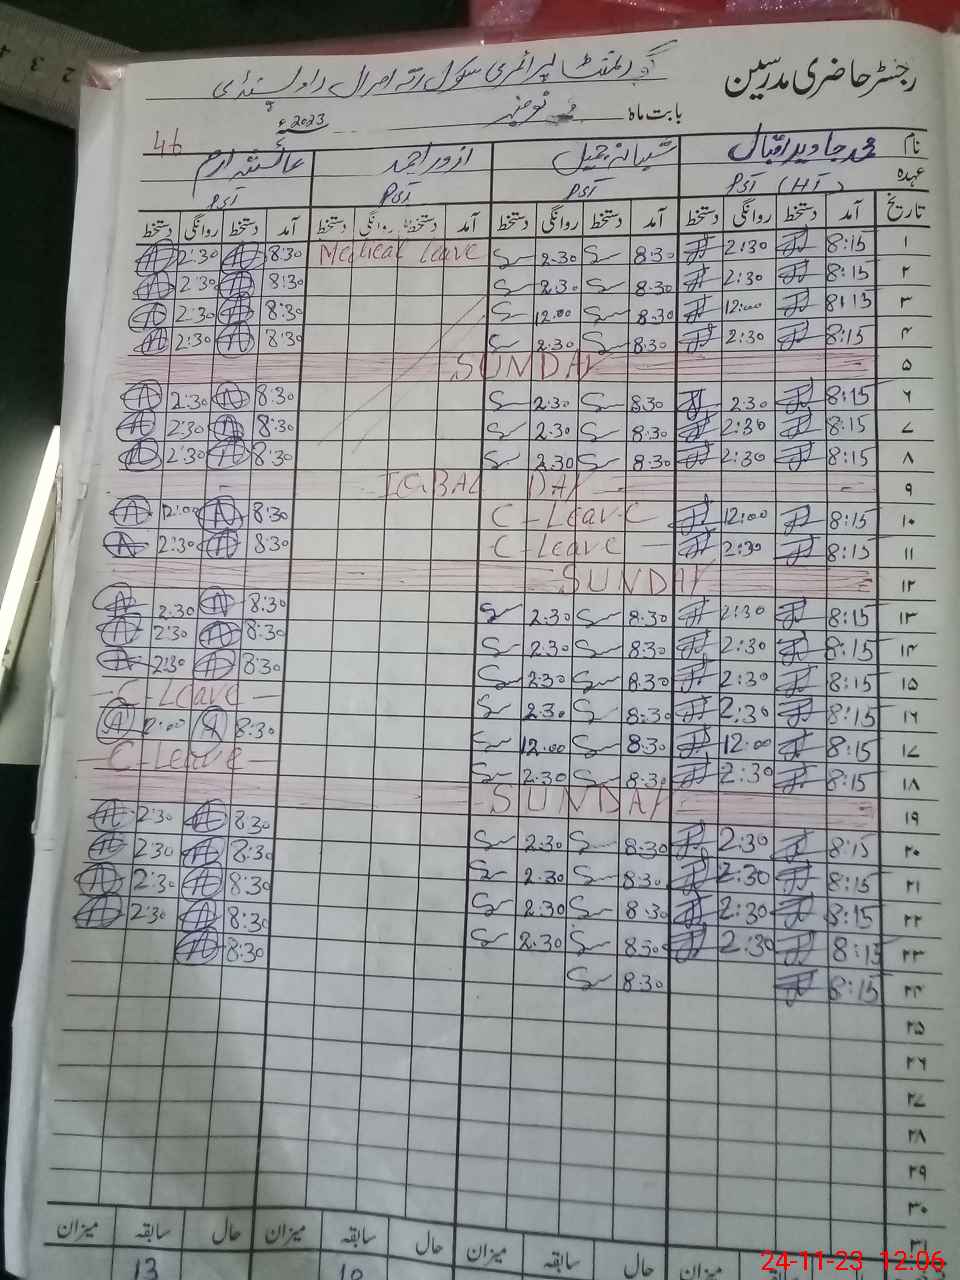 رجسٹر حاضری مدرسین
گورنمنٹ پرائمری سکول رتہ امرال راولپنڈی
بابت ماہ نومبر 2023ء
46
نام محمد جاوید اقبال شبانہ جمیل ازور احمد عائشہ ارم
عہدہ PST (HT) PST PST PST
تاریخ آمد دستخط روانگی دستخط آمد دستخط روانگی دستخط آمد دستخط روانگی دستخط آمد دستخط روانگی دستخط
۱ 8:15 2:30 8:30 2:30 Medical Leave 8:30 2:30
۲ 8:15 2:30 8:30 2:30 8:30 2:30
۳ 8:15 12:00 8:30 12:00 8:30 2:30
۴ 8:15 2:30 8:30 2:30 8:30 2:30
۵ SUNDAY
۶ 8:15 2:30 8:30 2:30 8:30 2:30
۷ 8:15 2:30 8:30 2:30 8:30 2:30
۸ 8:15 2:30 8:30 2:30 8:30 2:30
۹ IQBAL DAY
۱۰ 8:15 12:00 C-Leave 8:30 12:00
۱۱ 8:15 2:30 C-Leave 8:30 2:30
۱۲ SUNDAY
۱۳ 8:15 2:30 8:30 2:30 8:30 2:30
۱۴ 8:15 2:30 8:30 2:30 8:30 2:30
۱۵ 8:15 2:30 8:30 2:30 8:30 2:30
۱۶ 8:15 2:30 8:30 2:30 C-Leave
۱۷ 8:15 12:00 8:30 12:00 8:30 12:00
۱۸ 8:15 2:30 8:30 2:30 C-Leave
۱۹ SUNDAY
۲۰ 8:15 2:30 8:30 2:30 8:30 2:30
۲۱ 8:15 2:30 8:30 2:30 8:30 2:30
۲۲ 8:15 2:30 8:30 2:30 8:30 2:30
۲۳ 8:15 2:30 8:30 2:30 8:30 2:30
۲۴ 8:15 8:30 8:30
۲۵
۲۶
۲۷
۲۸
۲۹
۳۰
۳۱
حال سابقہ میزان حال سابقہ میزان حال سابقہ میزان
13
24-11-23 12:06